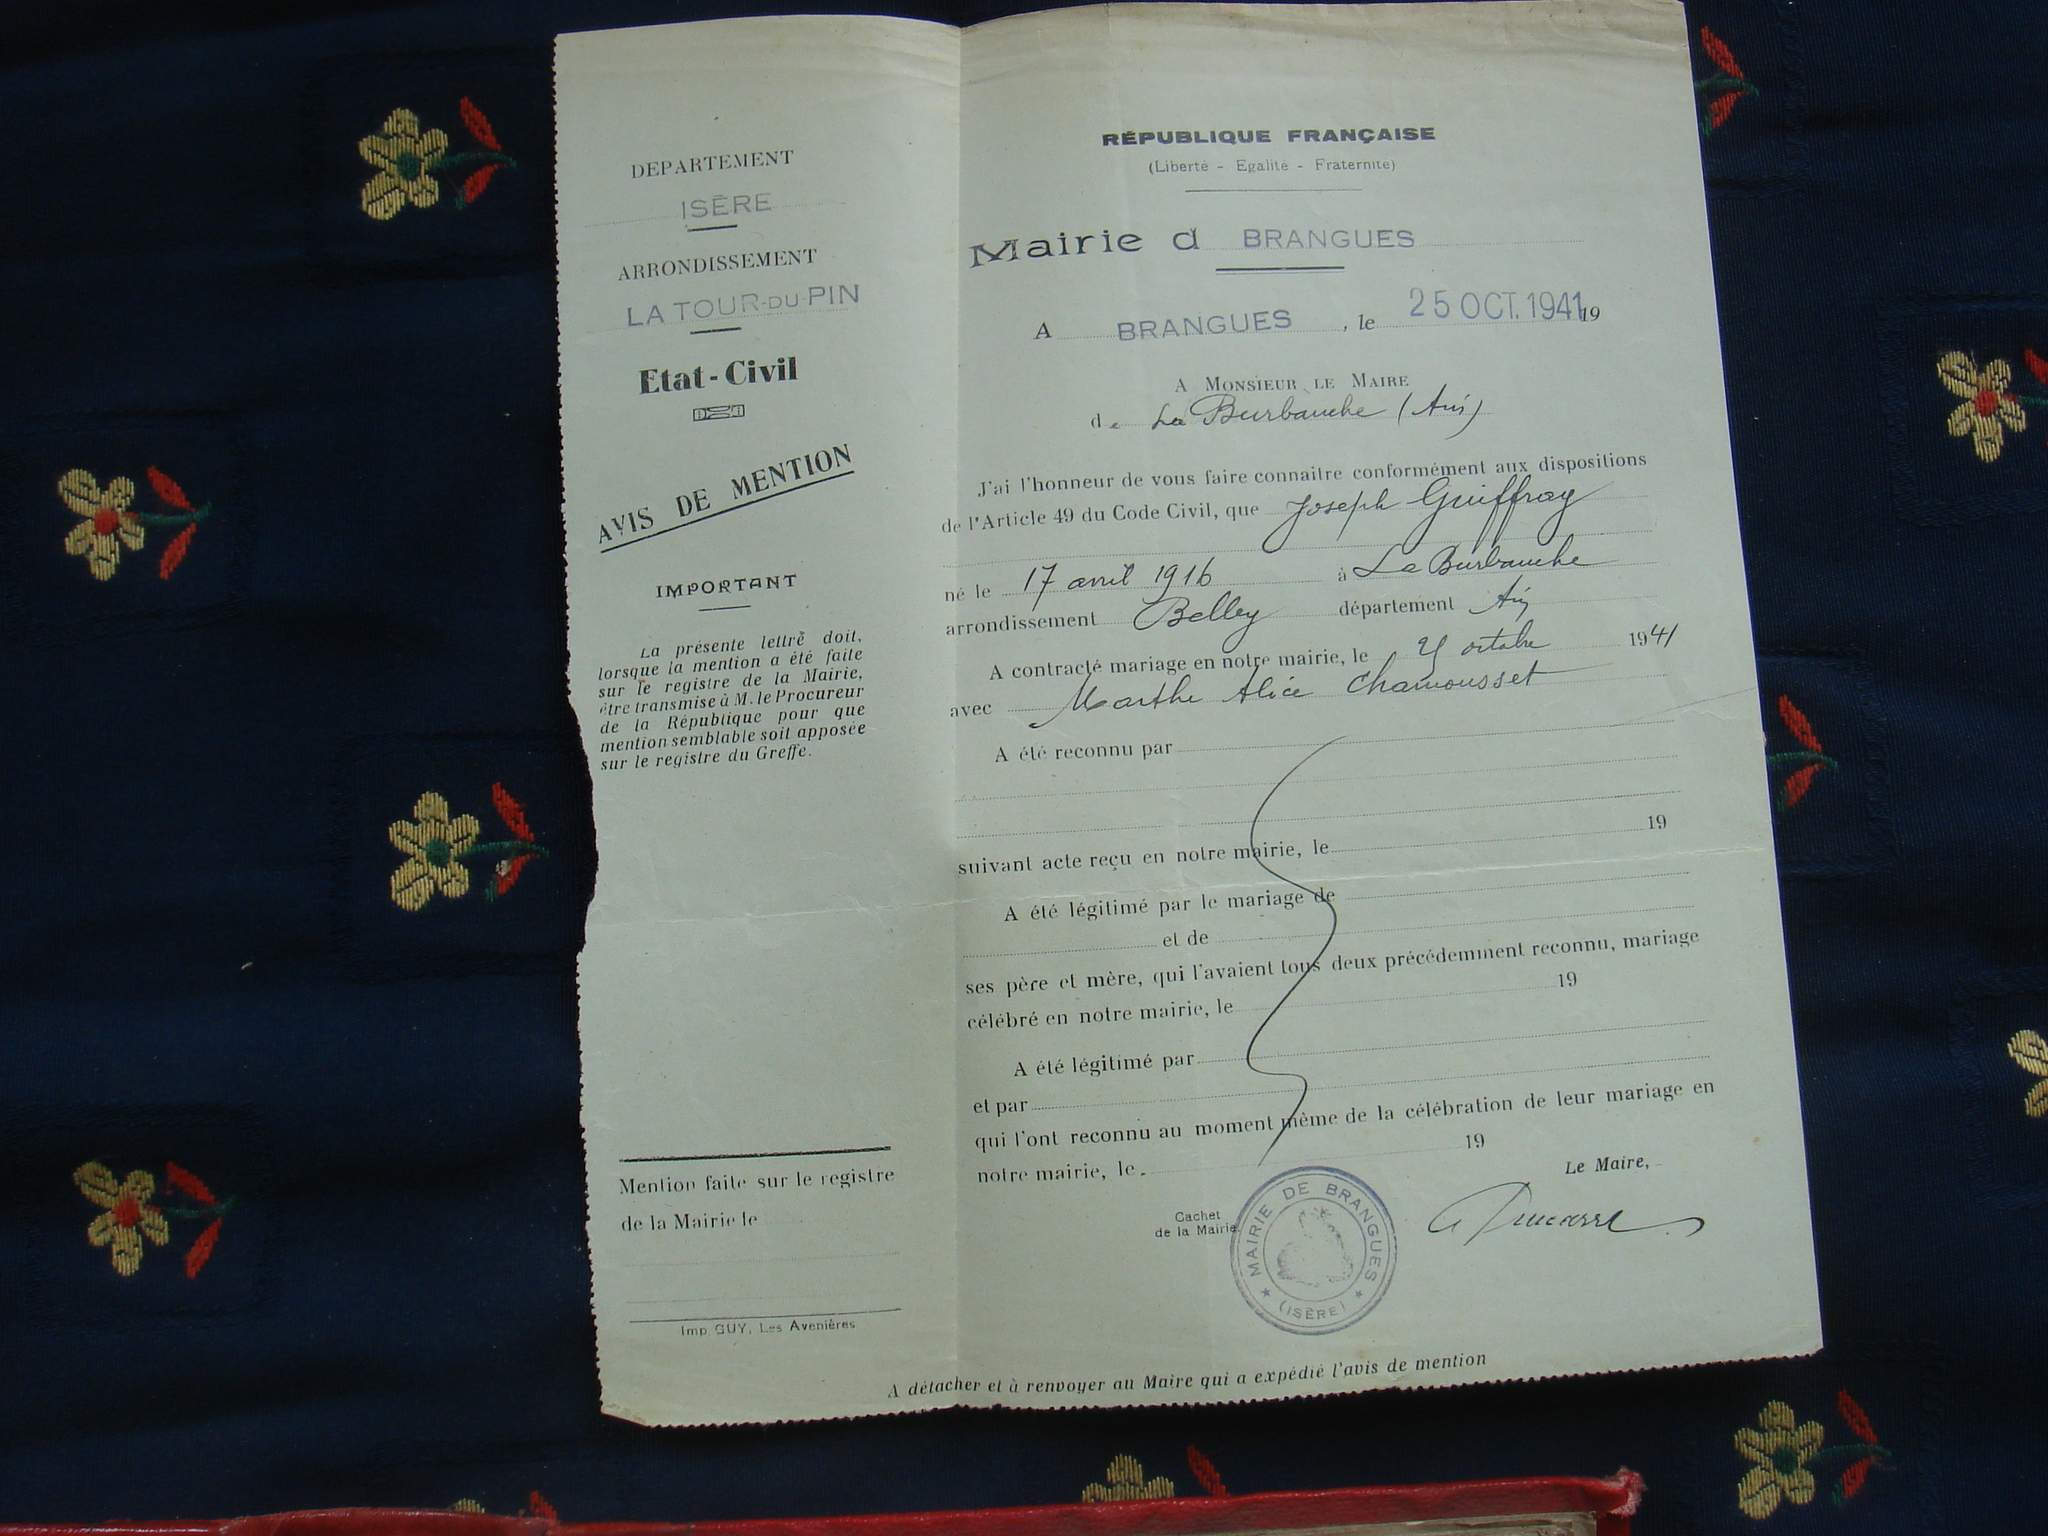 DEPARTEMENT
ISÈRE
ARRONDISSEMENT
LA TOUR-DU-PIN
Etat-Civil
AVIS DE MENTION
IMPORTANT
La présente lettre doit,
lorsque la mention a été faite
sur le registre de la Mairie,
être transmise à M. le Procureur
de la République pour que
mention semblable soit apposée
sur le registre du Greffe.
Mention faite sur le registre
de la Mairie le
Imp. GUY, Les Avenières
RÉPUBLIQUE FRANÇAISE
(Liberté - Egalité - Fraternité)
Mairie d BRANGUES
A BRANGUES, le 25 OCT. 1941 19
A MONSIEUR LE MAIRE
de La Burbanche (Ain)
J'ai l'honneur de vous faire connaitre conformément aux dispositions
de l'Article 49 du Code Civil, que Joseph Guiffray
né le 17 avril 1916 à La Burbanche
arrondissement Belley département Ain
A contracté mariage en notre mairie, le octobre 1941
avec Marthe Alice Chamousset
A été reconnu par
suivant acte reçu en notre mairie, le 19
A été légitimé par le mariage de
et de
ses père et mère, qui l'avaient tous deux précédemment reconnu, mariage
célébré en notre mairie, le 19
A été légitimé par
et par
qui l'ont reconnu au moment même de la célébration de leur mariage en
notre mairie, le 19
Le Maire,
Cachet
de la Mairie
MAIRIE DE BRANGUES
(ISÈRE)
A détacher et à renvoyer au Maire qui a expédié l'avis de mention